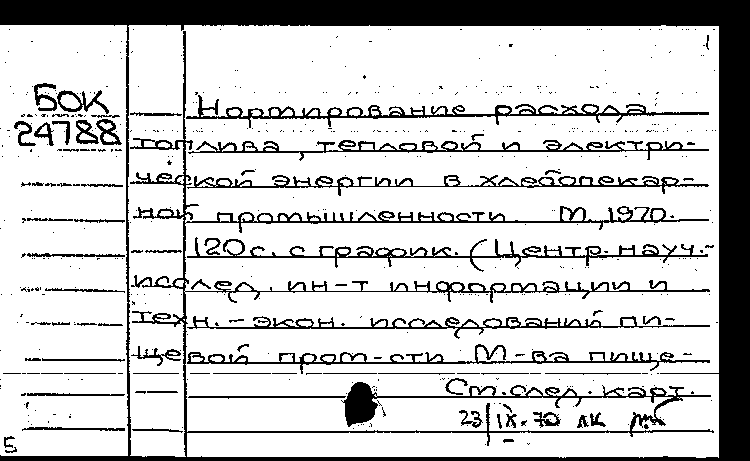 БОК
24788
Нормирование расхода
топлива, тепловой и электри-
ческой энергии в хлебопекар-
ной промышленности. М., 1970.
120 с. с график. (Центр. науч.-
исслед. ин-т информации и
техн.-экон. исследований пи-
щевой пром-сти М-ва пище-
См. след. карт.
23/IX-70 лк
5